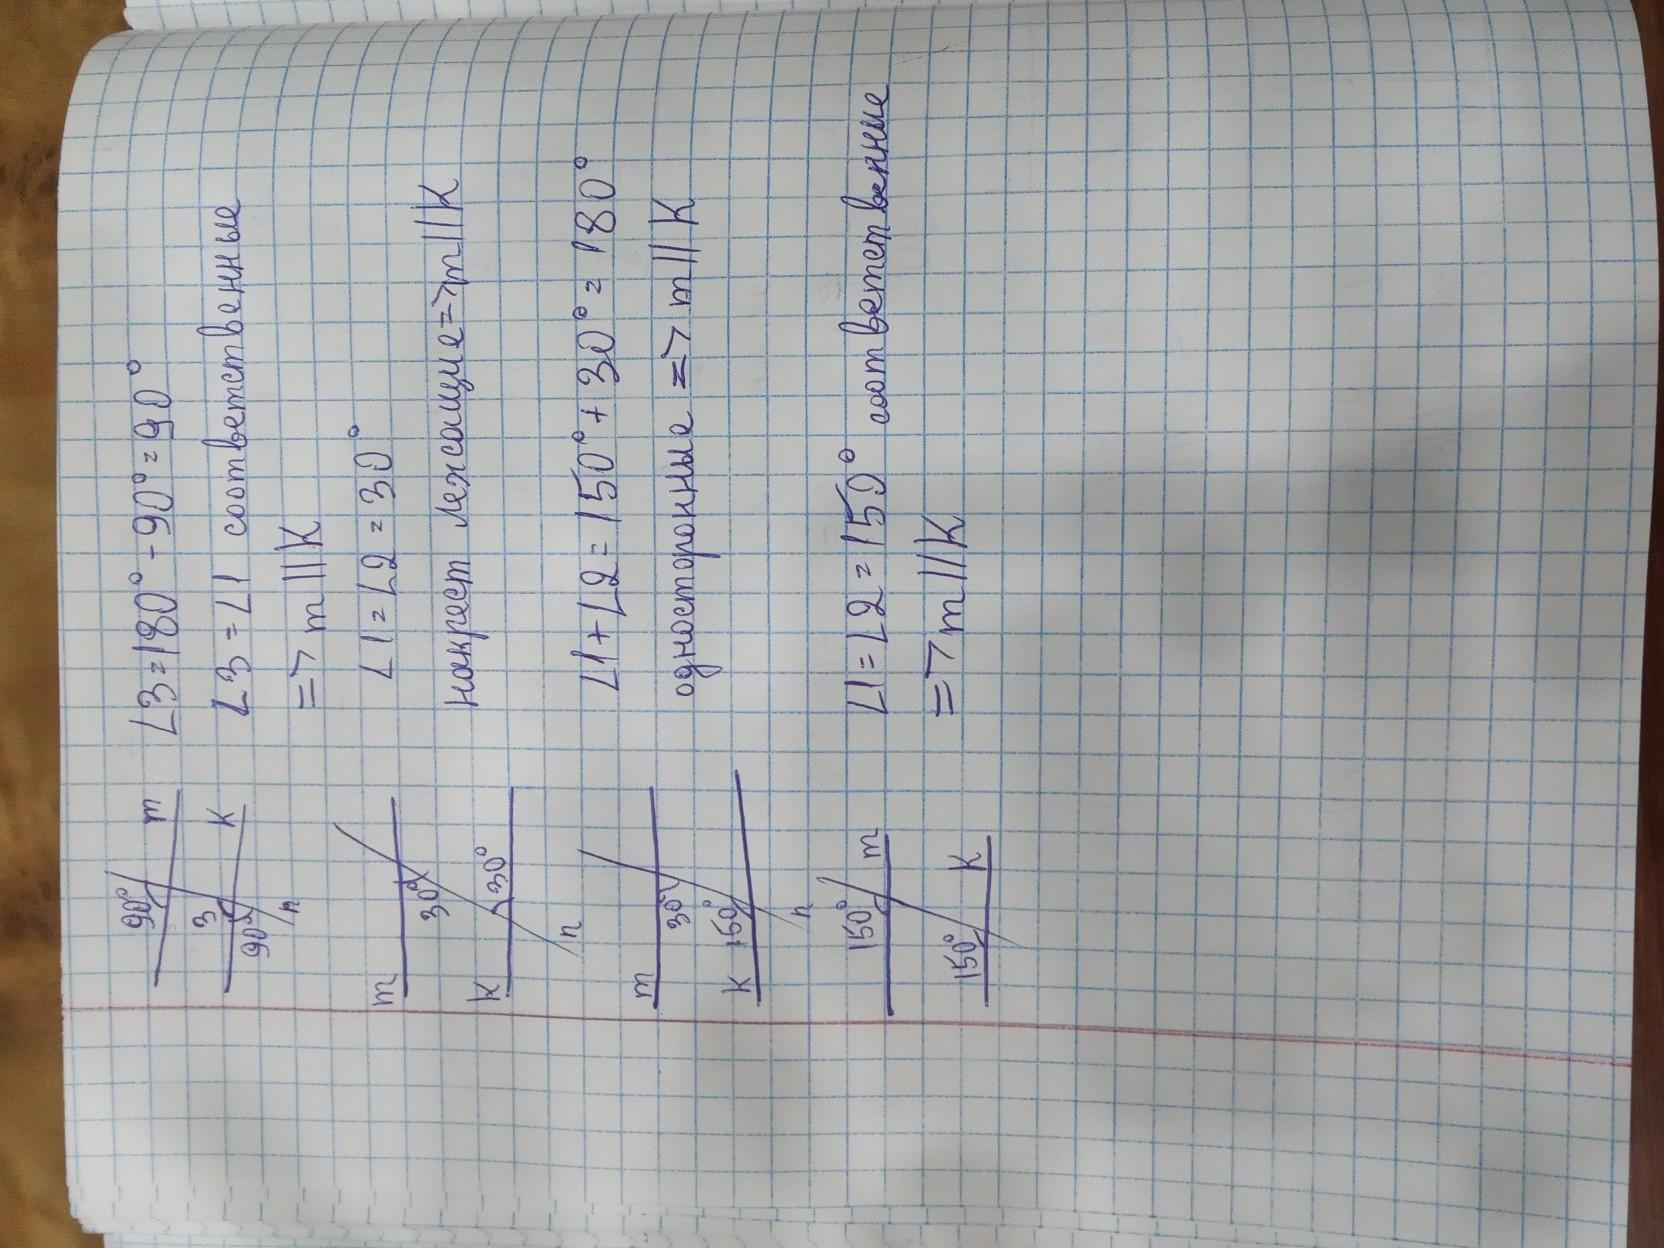 90° m
3 k
90° n
∠3=180°-90°=90°
∠3=∠1 соответственные
=> m||k
m
30°
k 30°
n
∠1=∠2=30°
накрест лежащие=>m||k
m
30°
k 150°
n
∠1+∠2=150°+30°=180°
односторонние => m||k
150° m
150° k
∠1=∠2=150° соответственные
=> m||k